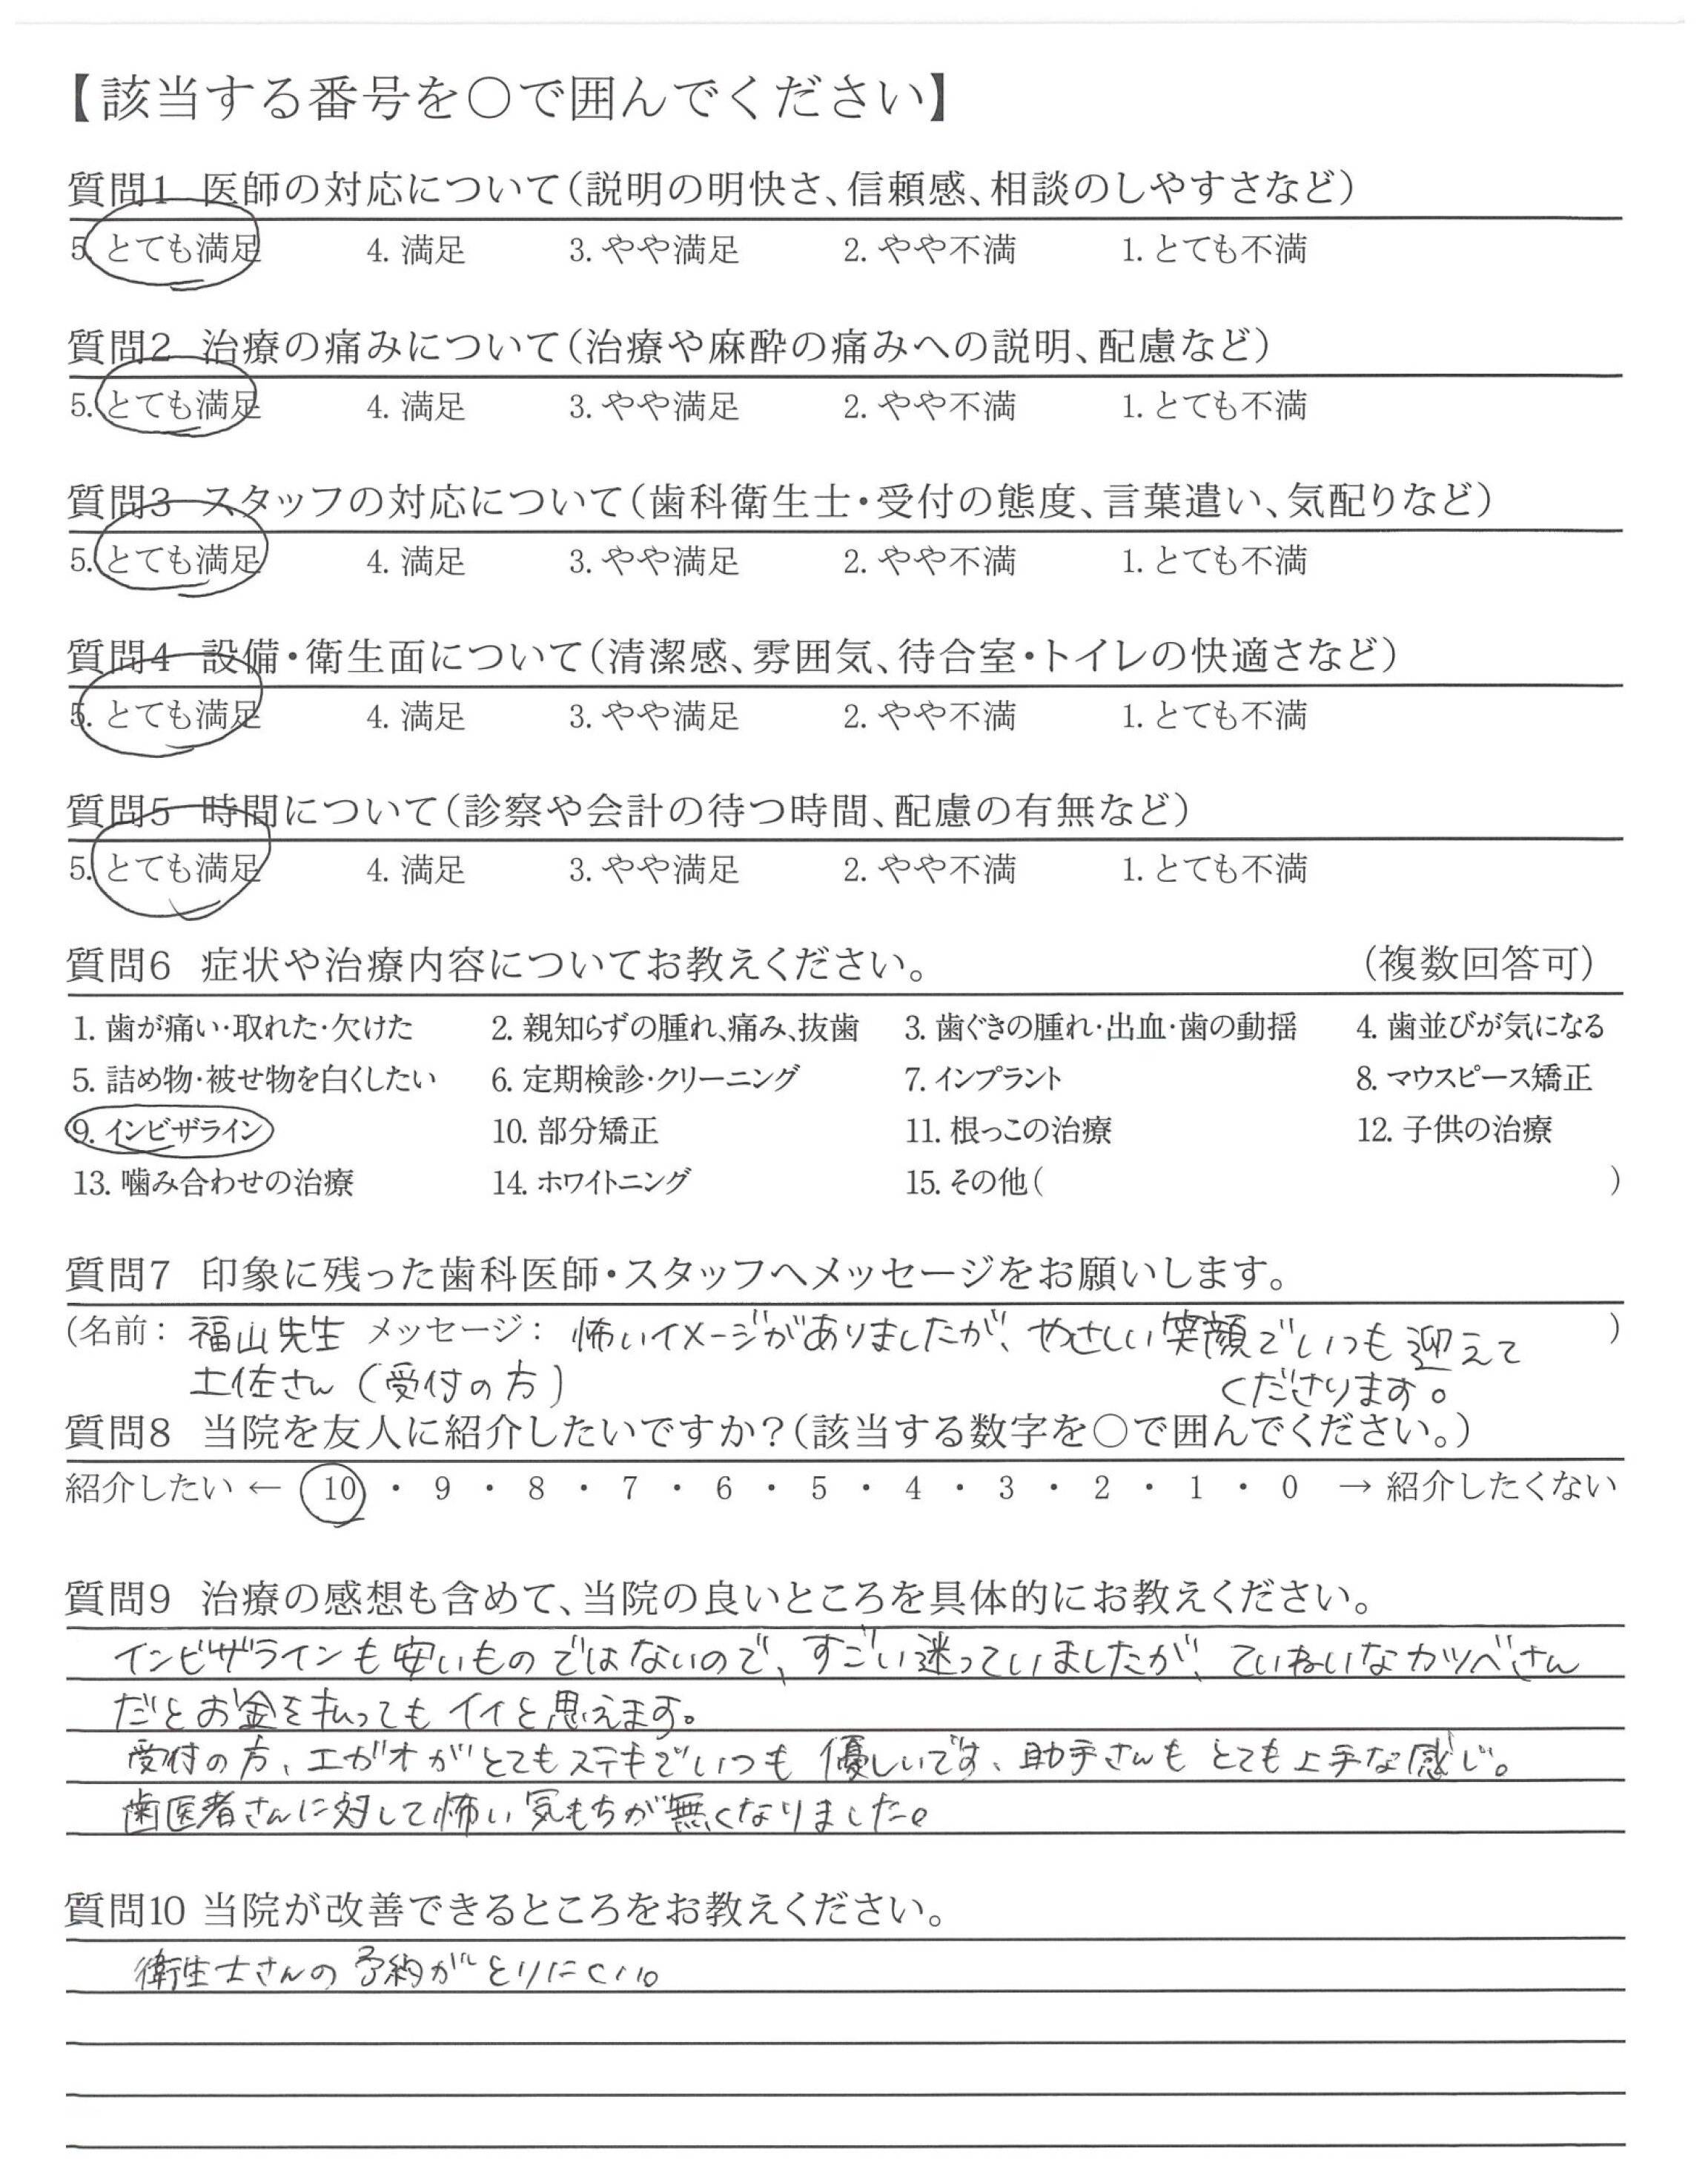 【該当する番号を○で囲んでください】
質問1 医師の対応について（説明の明快さ、信頼感、相談のしやすさなど）
5. とても満足 4. 満足 3. やや満足 2. やや不満 1. とても不満
質問2 治療の痛みについて（治療や麻酔の痛みへの説明、配慮など）
5. とても満足 4. 満足 3. やや満足 2. やや不満 1. とても不満
質問3 スタッフの対応について（歯科衛生士・受付の態度、言葉遣い、気配りなど）
5. とても満足 4. 満足 3. やや満足 2. やや不満 1. とても不満
質問4 設備・衛生面について（清潔感、雰囲気、待合室・トイレの快適さなど）
5. とても満足 4. 満足 3. やや満足 2. やや不満 1. とても不満
質問5 時間について（診察や会計の待つ時間、配慮の有無など）
5. とても満足 4. 満足 3. やや満足 2. やや不満 1. とても不満
質問6 症状や治療内容についてお教えください。 （複数回答可）
1. 歯が痛い・取れた・欠けた 2. 親知らずの腫れ、痛み、抜歯 3. 歯ぐきの腫れ・出血・歯の動揺 4. 歯並びが気になる
5. 詰め物・被せ物を白くしたい 6. 定期検診・クリーニング 7. インプラント 8. マウスピース矯正
9. インビザライン 10. 部分矯正 11. 根っこの治療 12. 子供の治療
13. 噛み合わせの治療 14. ホワイトニング 15. その他（ ）
質問7 印象に残った歯科医師・スタッフへメッセージをお願いします。
（名前： 福山先生 メッセージ： 怖いイメージがありましたが、やさしい笑顔でいつも迎えて ）
土佐さん（受付の方） くださります。
質問8 当院を友人に紹介したいですか？（該当する数字を○で囲んでください。）
紹介したい ← 10 ・ 9 ・ 8 ・ 7 ・ 6 ・ 5 ・ 4 ・ 3 ・ 2 ・ 1 ・ 0 → 紹介したくない
質問9 治療の感想も含めて、当院の良いところを具体的にお教えください。
インビザラインも安いものではないので、すごい迷っていましたが、ていねいなカツベさん
だとお金を払ってもイイと思えます。
受付の方、エガオがとてもステキでいつも優しいです、助手さんもとても上手な感じ。
歯医者さんに対して怖い気もちが無くなりました。
質問10 当院が改善できるところをお教えください。
衛生士さんの予約がとりにくい。